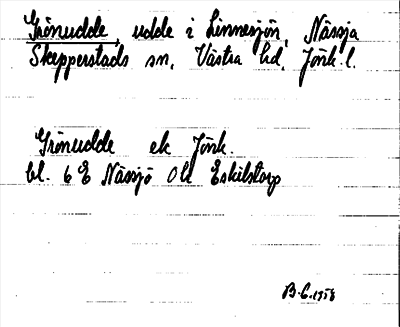 Grönudde, udde i Linnesjön, Nässja
Skepperstads sn, Västra hd, Jönk. l.
Grönudde ek Jönk.
bl. 6 E Nässjö Ok Eskilstorp
B.C. 1958